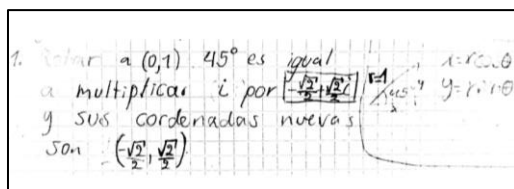 1. Rotar a (0,1) 45° es igual
a multiplicar i por -√2/2+√2/2 i
y sus cordenadas nuevas
son (-√2/2, √2/2)
r=1
45°
x=rcosθ
y=rsinθ